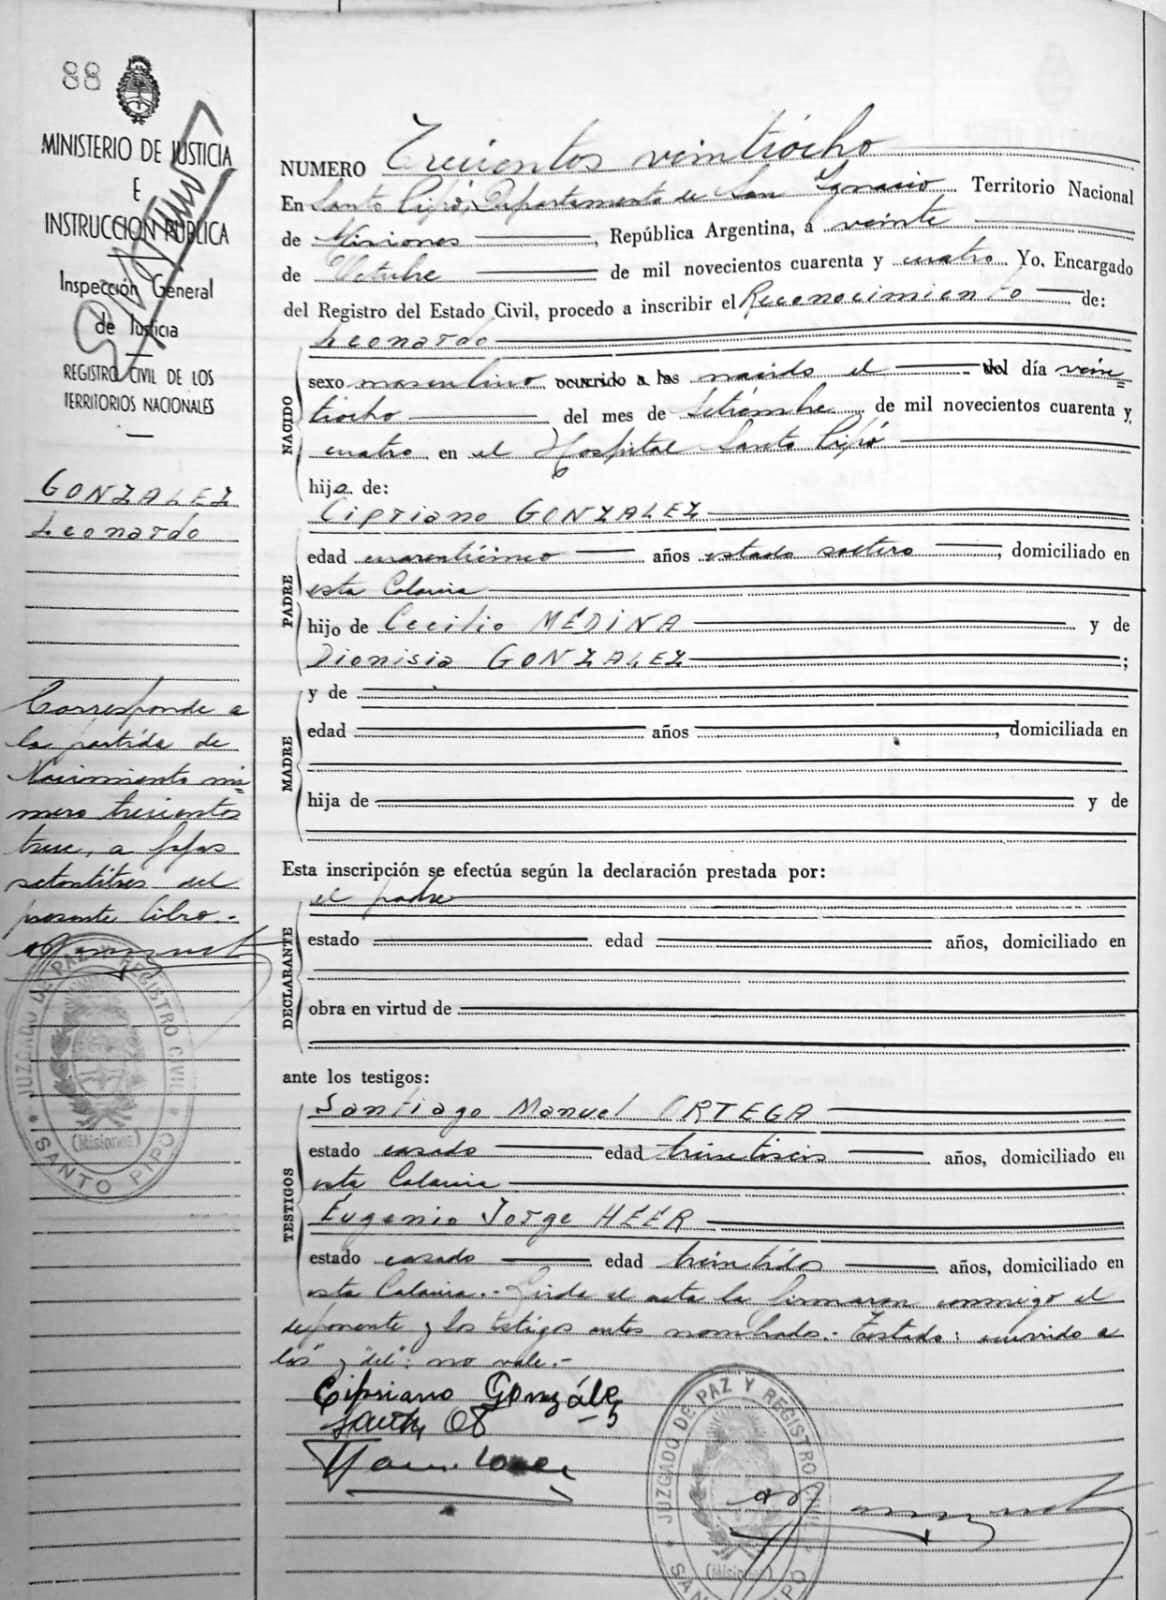 88
MINISTERIO DE JUSTICIA
E
INSTRUCCION PUBLICA
Inspección General
de Justicia
REGISTRO CIVIL DE LOS
TERRITORIOS NACIONALES
GONZALEZ
Leonardo
Corresponde a
la partida de
Nacimiento nú=
mero trescientos
trece, a fojas
setentitres del
presente libro.-
JUZGADO DE PAZ Y REGISTRO CIVIL
(Misiones)
SANTO PIPÓ
NUMERO Trecientos veintiocho
En Santo Pipó, Departamento de San Ignacio Territorio Nacional
de Misiones, República Argentina, a veinte
de Octubre de mil novecientos cuarenta y cuatro Yo, Encargado
del Registro del Estado Civil, procedo a inscribir el Reconocimiento de:
NACIDO
Leonardo
sexo masculino ocurrido a las nacido el del día vein=
tiocho del mes de Setiembre de mil novecientos cuarenta y
cuatro en el Hospital Santo Pipó
hijo de:
PADRE
Cipriano GONZALEZ
edad cuarenticinco años estado soltero, domiciliado en
esta Colonia
hijo de Cecilio MEDINA y de
Dionisia GONZALEZ;
MADRE
y de
edad años, domiciliada en
hija de y de
Esta inscripción se efectúa según la declaración prestada por:
DECLARANTE
el padre
estado edad años, domiciliado en
obra en virtud de
ante los testigos:
TESTIGOS
Santiago Manuel ORTEGA
estado casado edad treintiseis años, domiciliado en
esta Colonia
Eugenio Jorge HEER
estado casado edad treintidos años, domiciliado en
esta Colonia.- Leída el acta la firmaron conmigo el
deponente y los testigos antes nombrados.- Testado: "ocurrido a
las" y "del": no vale.-
Cipriano Gonzále
-z
JUZGADO DE PAZ Y REGISTRO CIVIL
(Misiones)
SANTO PIPÓ